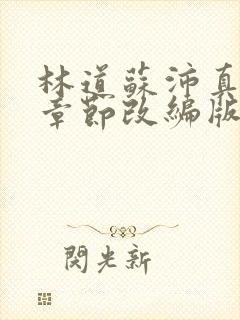 林道蘇沛真
章節改編版
閃光新